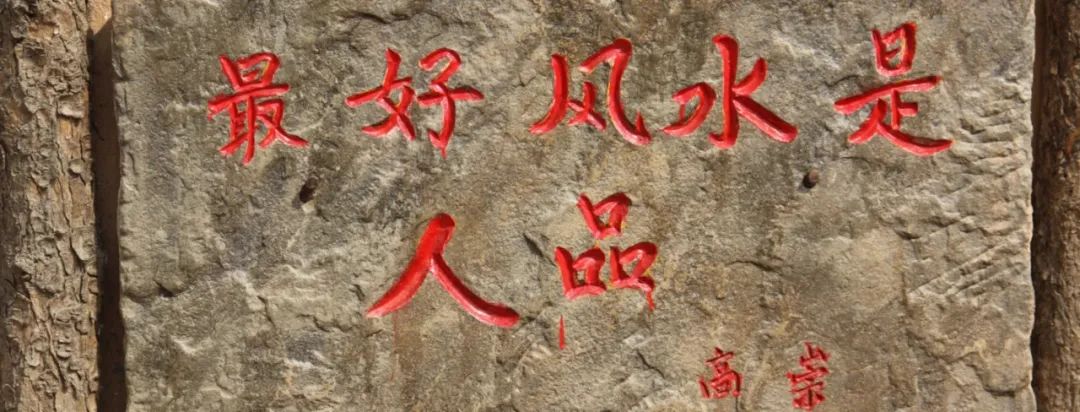 最好风水是
人品
高崇